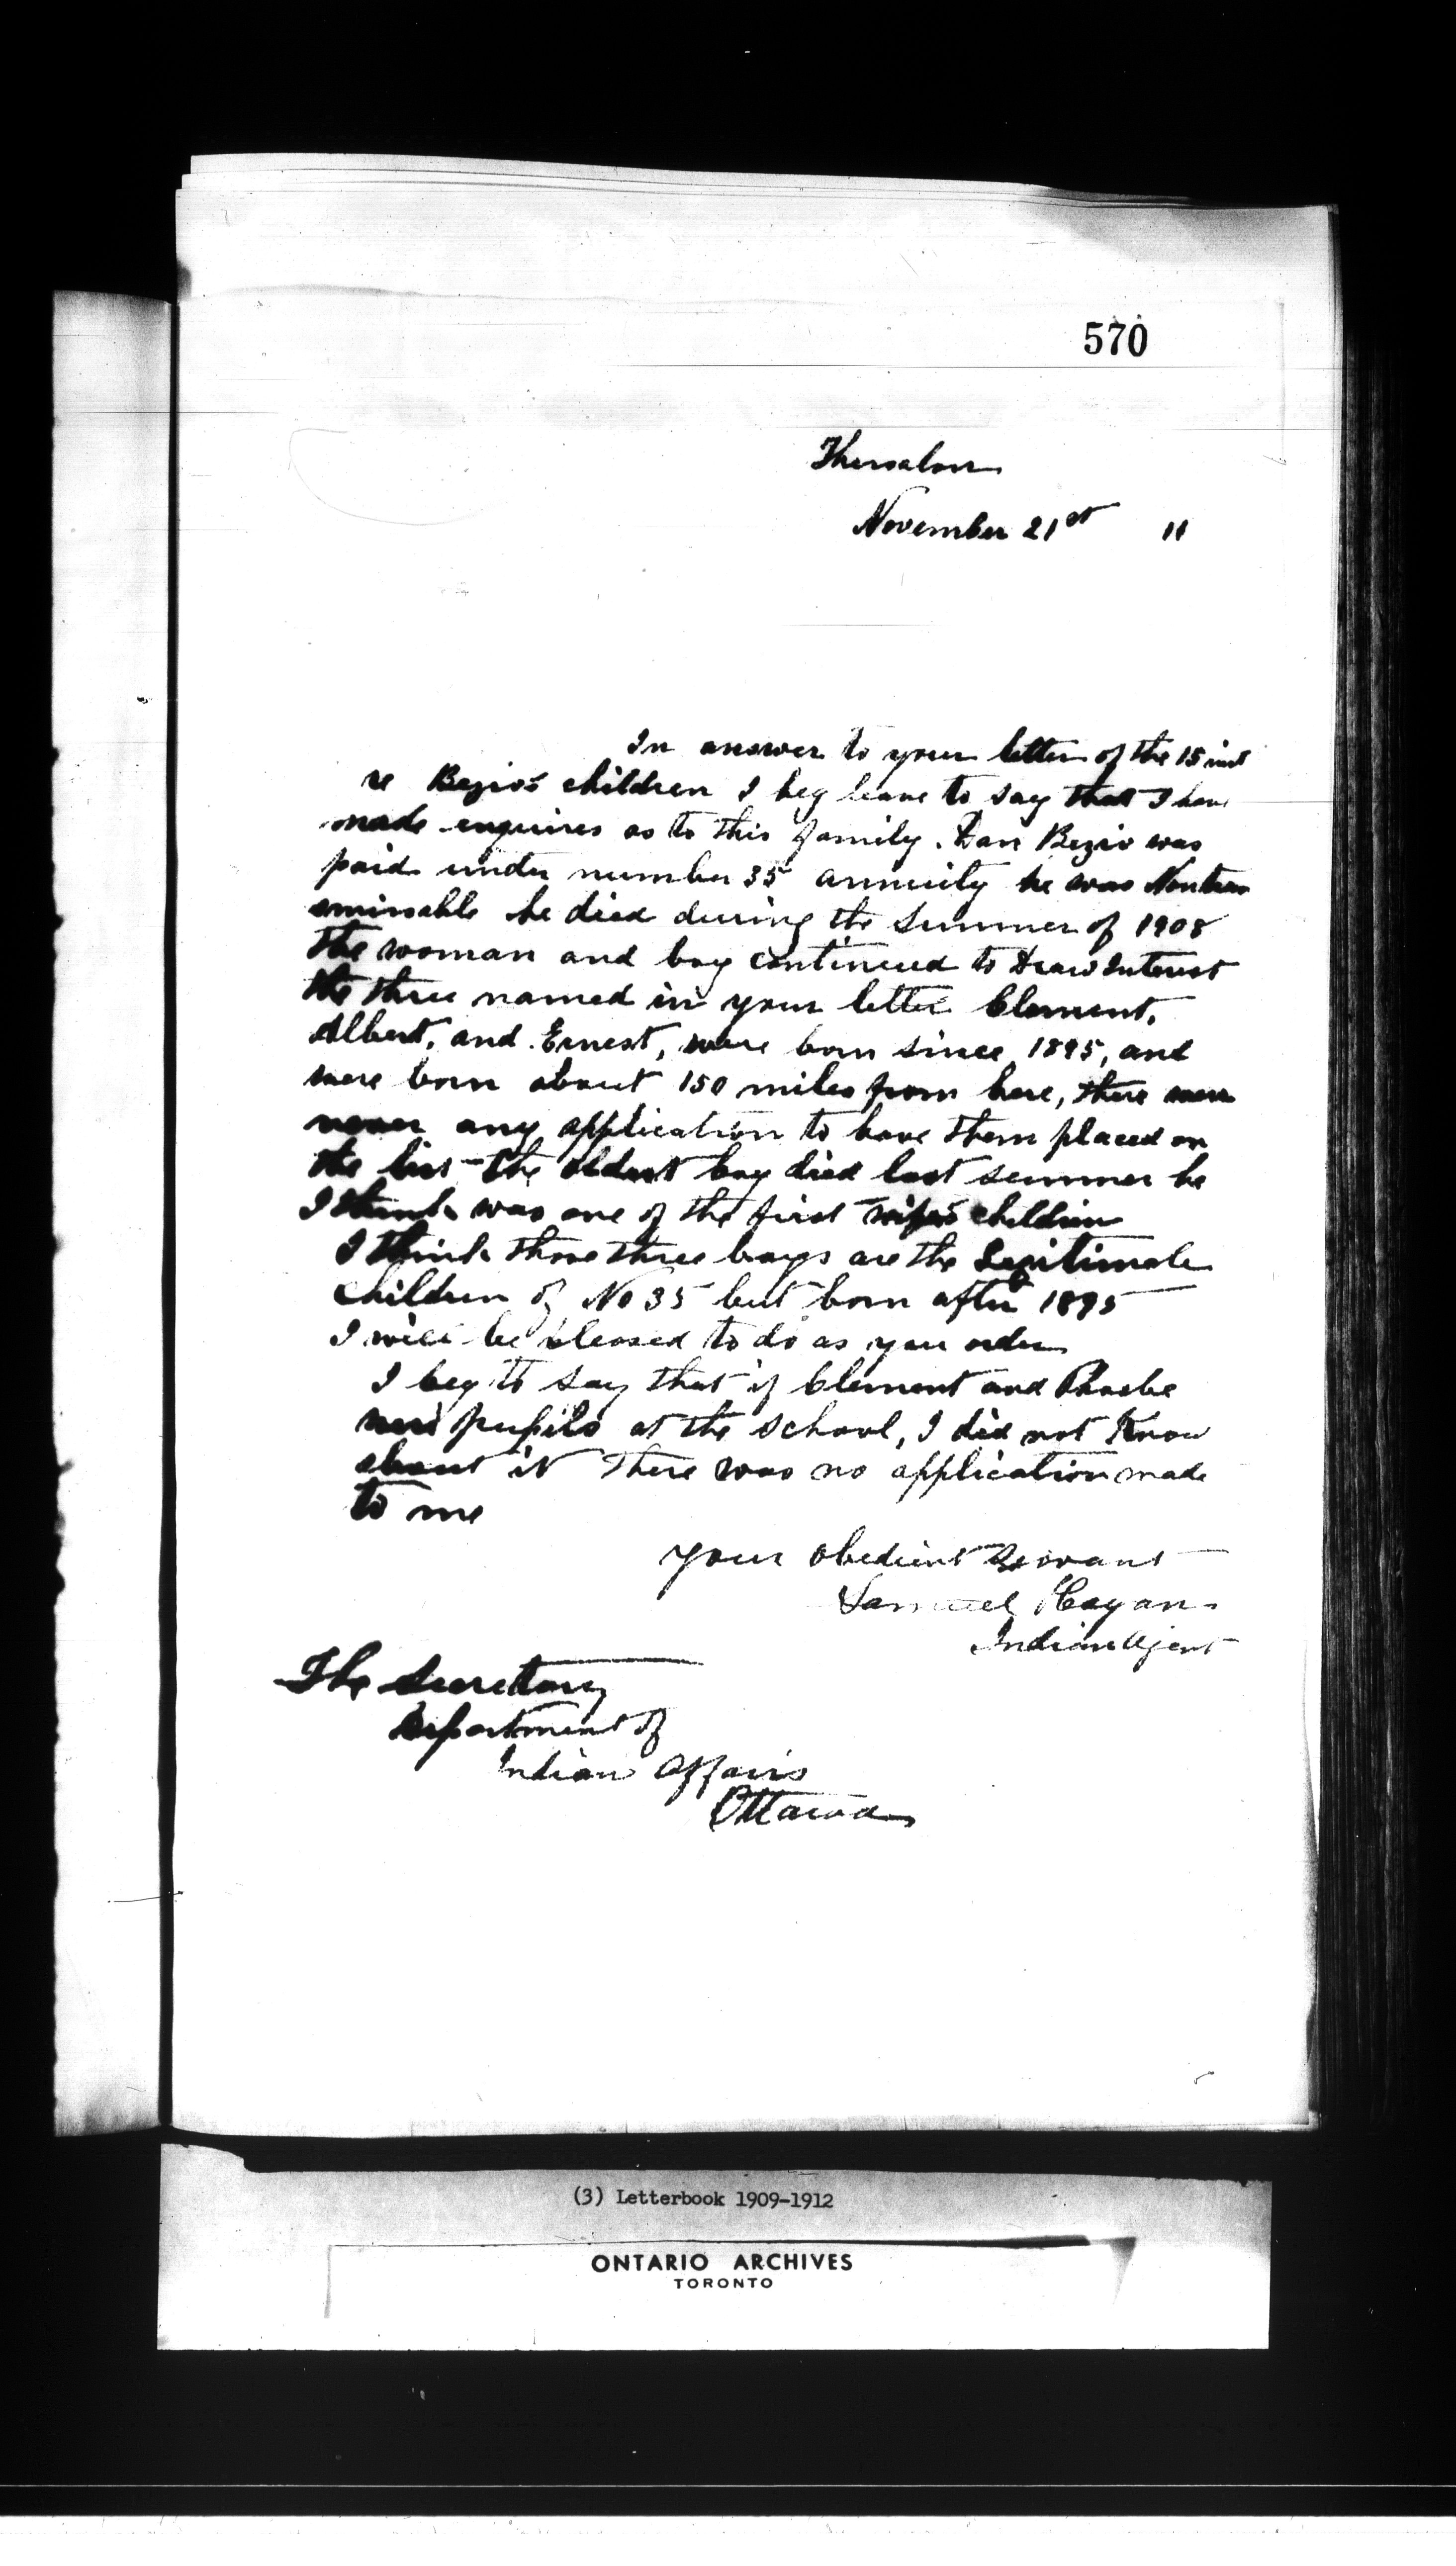 570
Thessalon
November 21st 11
In answer to your letter of the 15 inst
re Bezio's children I beg leave to say that I have
made enquires as to this family. Dan Bezio was
paid under number 35 annuity he was Nontran
smissable he died during the Summer of 1908
the woman and boy continued to Draw Interest
the three named in your letter Clement,
Albert, and Ernest, were born since 1895, and
were born about 150 miles from here, there were
never any application to have them placed on
the list - The oldest boy died last summer he
I think was one of the first wife's children
I think those three boys are the Legitimate
Children of No 35 but born after 1895
I will be pleased to do as you order
I beg to say that if Clement and Phoebe
were pupils at the School, I did not Know
about it There was no application made
to me
Your Obedient Servant
Samuel Hagan
Indian Agent
The Secretary
Department of
Indian Affairs
Ottawa
(3) Letterbook 1909-1912
ONTARIO ARCHIVES
TORONTO